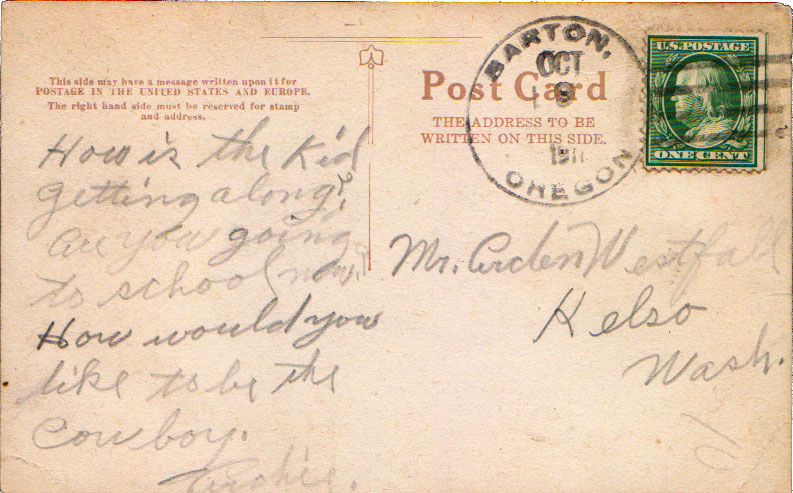 This side may have a message written upon it for
POSTAGE IN THE UNITED STATES AND EUROPE.
The right hand side must be reserved for stamp
and address.
How is the Kid
getting along?
Are you going
to school now?
How would you
like to be the
Cowboy.
Archie.
Post Card
THE ADDRESS TO BE
WRITTEN ON THIS SIDE.
BARTON,
OCT
9
OREGON
U.S. POSTAGE
ONE CENT
Mr. Arden Westfall
Kelso
Wash.